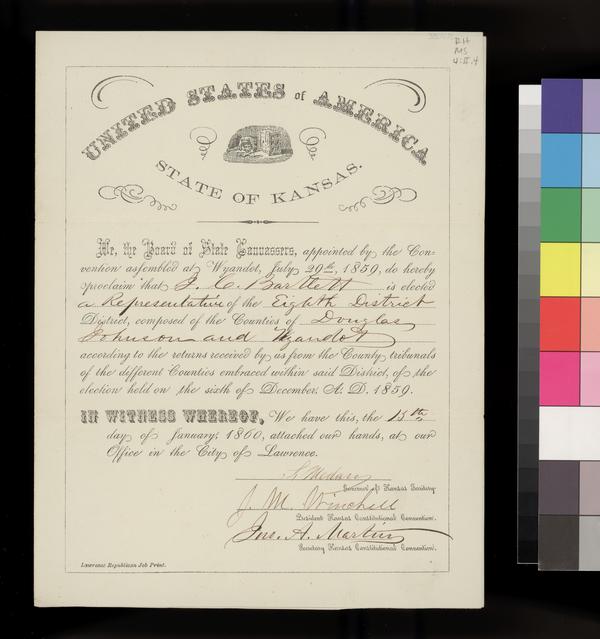 RH
MS
4:II.4
UNITED STATES of AMERICA
STATE OF KANSAS.
We, the Board of State Canvassers, appointed by the Con-
vention assembled at Wyandot, July 29th, 1859, do hereby
proclaim that J. C. Bartlett is elected
a Representative of the Eighth District
District, composed of the Counties of Douglas
Johnson and Wyandot
according to the returns received by us from the County tribunals
of the different Counties embraced within said District, of the
election held on the sixth of December, A. D. 1859.
IN WITNESS WHEREOF, We have this, the 13th
day of January, 1860, attached our hands, at our
Office in the City of Lawrence.
S Medary
Governor of Kansas Territory.
J. M. Winchell
President Kansas Constitutional Convention.
Jno. A. Martin
Secretary Kansas Constitutional Convention.
Lawrence Republican Job Print.